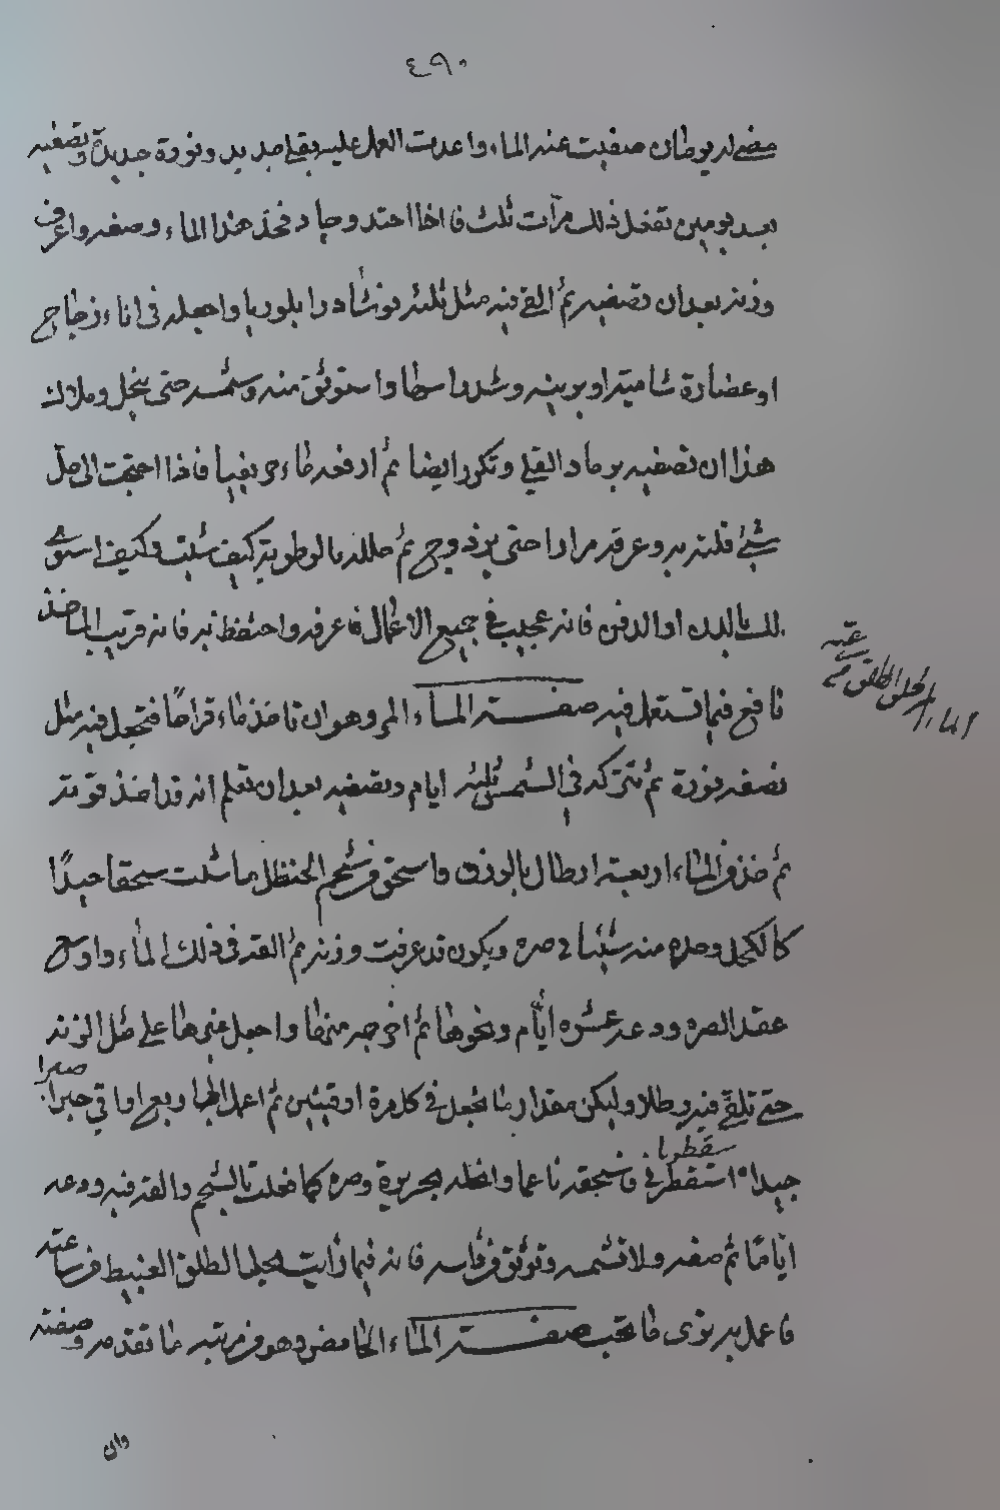 ٤٩٠
مضى له يومان صفيت عنه الماء واعدت العمل عليه بقلى جديد ونورة جديدة وتصفيه
بعد يومين تفعل ذلك مرات ثلث فاذا احتد وجاد فخذ هذا الماء وصفه واعرف
وزنه بعد ان تصفيه ثم الق فيه مثل ثلثه نوشادرا بلوريا واجعله في اناء زجاج
او غضارة شامية او برنية وشد راسها واستوثق منه وشمسه حتى ينحل وملاك
هذا ان تصفيه برماد القلى وتكرر ايضا ثم ارفعه فاذا احتجت الى حل
شئ قلبته به وعرقه مرارا حتى ثم حلله بالرطوبة كيف شئت وكيف استوى
لك بالبلة او الدفن فانه عجيب في جميع الاعمال فاعرفه واحتفظ به فانه قريب الماخذ
نافع فيما تستعمل فيه صفة الماء المر وهو ان تاخذ ماء قراحا فتجعل فيه مثل
نصفه نورة ثم تتركه في الشمس ثلثة ايام وتصفيه بعد ان تعلم انه قد اخذ قوته
ثم خذ من الماء اربعة ارطال بالوزن واسحق من شحم الحنظل ما شئت سحقا جيدا
كالكحل وصره منه شيئا في صره ويكون قد عرفت وزنه ثم القه في ذلك الماء واوسع
عقد الصره ودعه عشره ايام ونحوها ثم اخرجه منها واجعل غيرها على مثل الوزنه
حتى تلقى فيه رطلا وليكن مقدار ما تجعل في كل مرة اوقيتين ثم اعمد الى اربع اواقي صبرا
جيدا اسقطري سقطريا فاسحقه ناعما وانخله بحريرة وصره كما فعلت بالشحم والقه فيه ودعه
اياما ثم صفه ولا تشمسه وتوثق من راسه فانه فيما رايت يحل الطلق العبيط من ساعته
فاعمل به ترى ما تحب صفة الماء الحامض وهو من مرتبه ما تقدم وصفته
الماء المر يحل الطلق من ساعته
وان